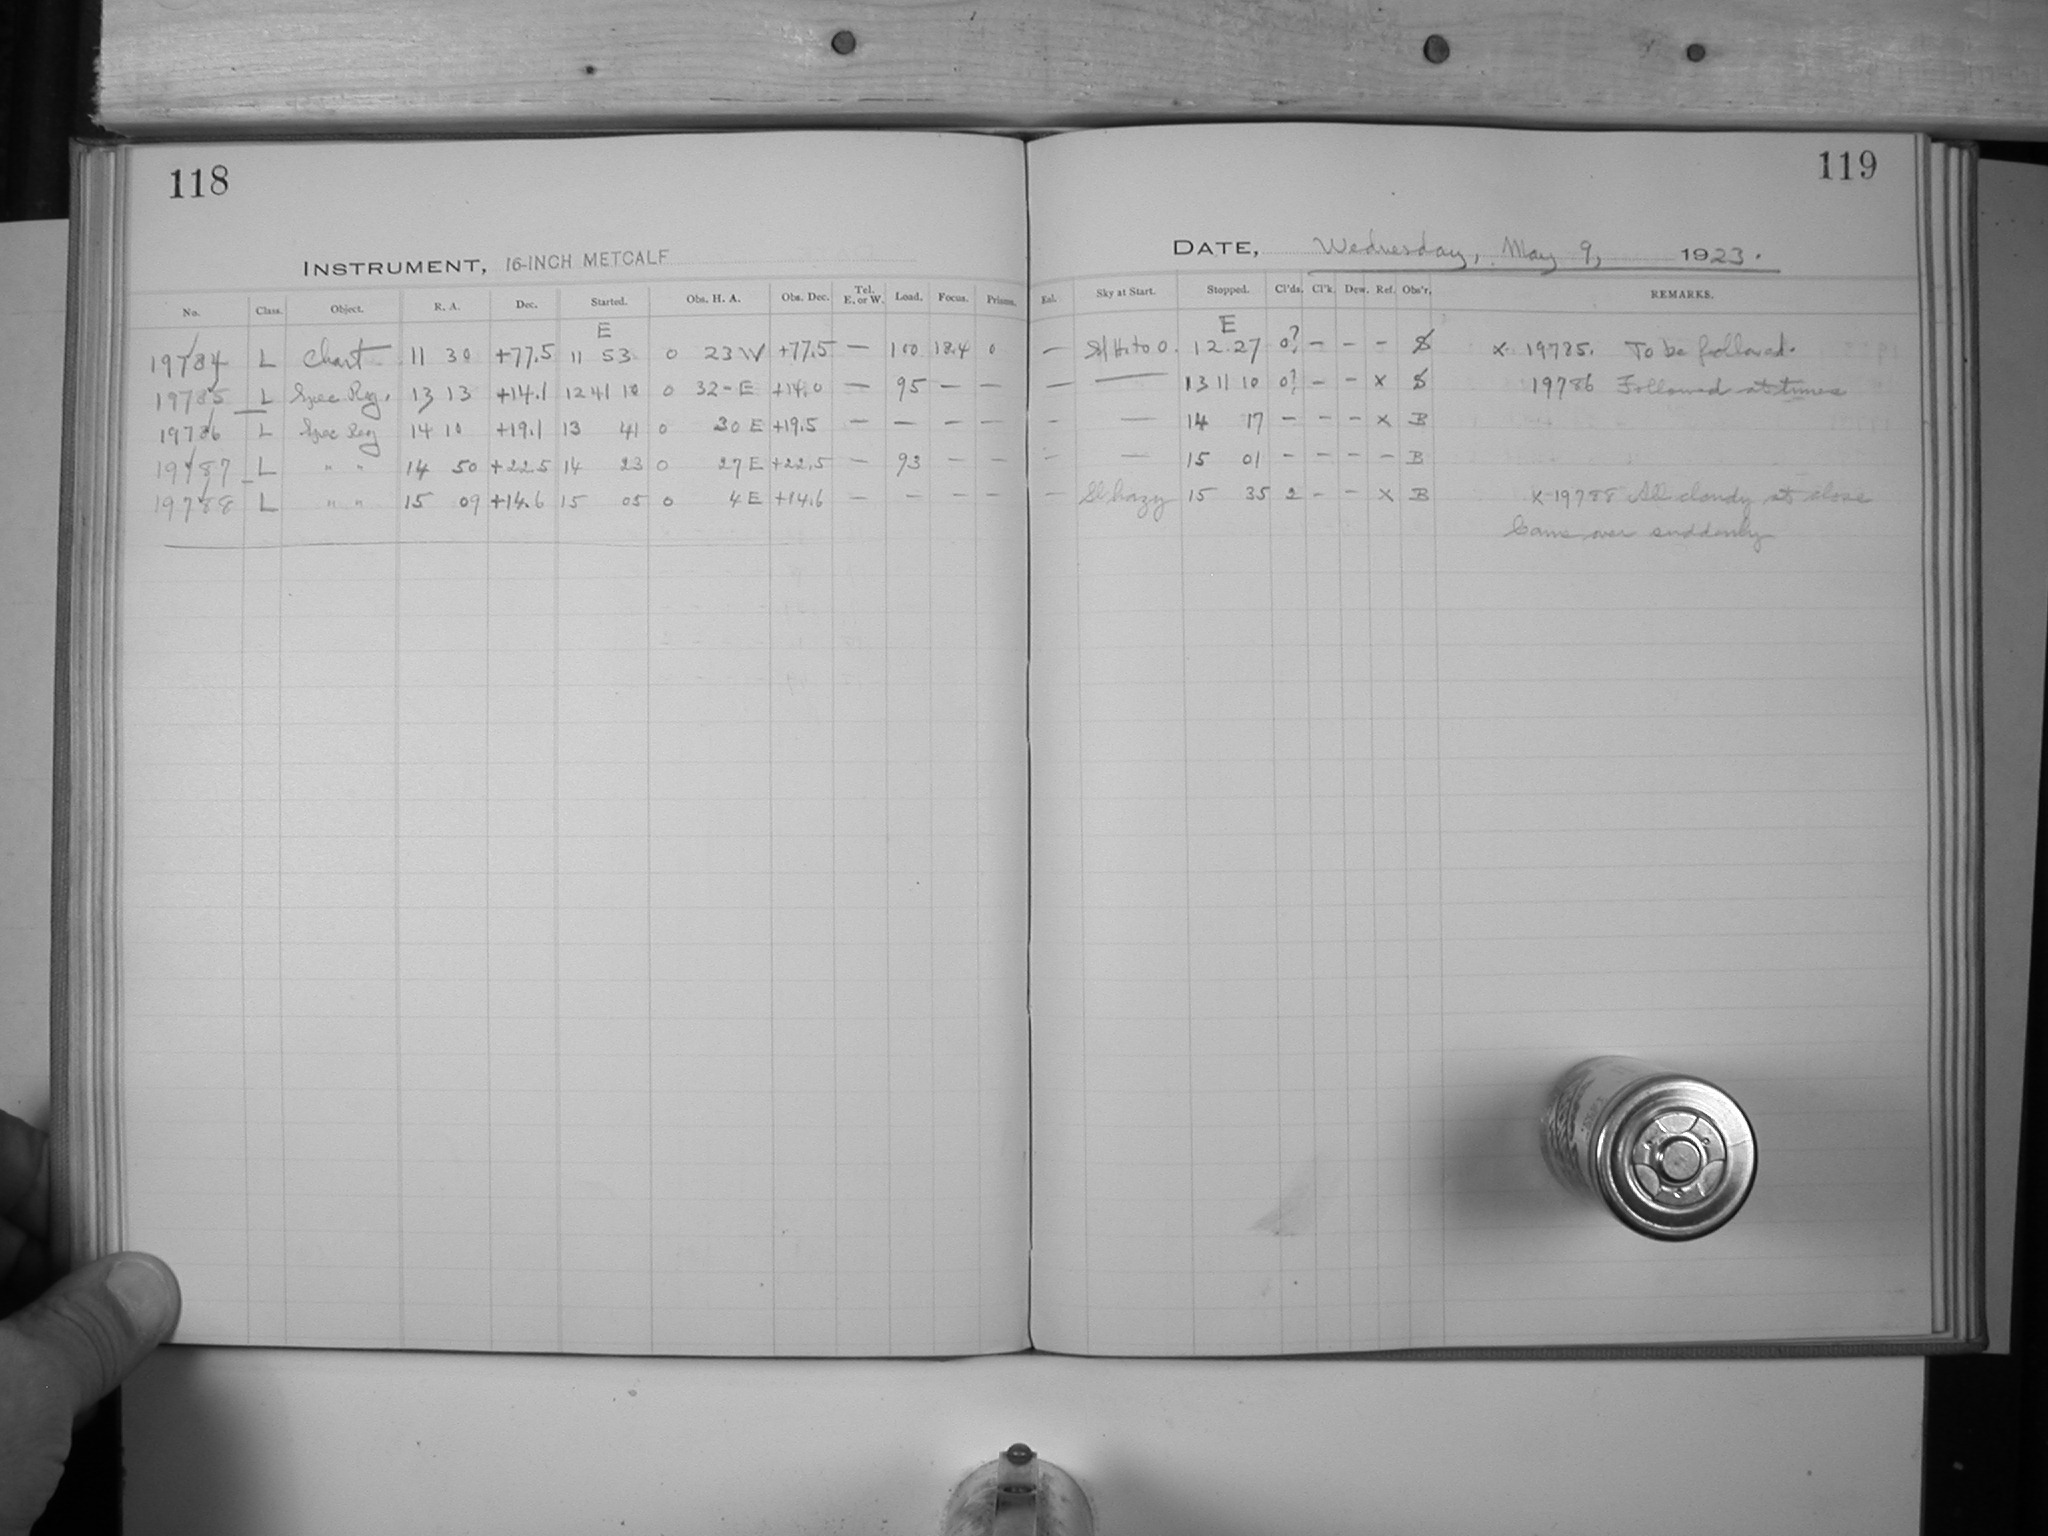 118
119
INSTRUMENT, 16-INCH METCALF
DATE, Wednesday, May 9, 1923.
No. Class. Object. R. A. Dec. Started. Obs. H. A. Obs. Dec. Tel. E. or W. Load. Focus. Prisms. Sky at Start. Stopped. Cl'ds. Cl'k. Dew. Ref. Obs'r. REMARKS.
E E
19784 L Chart 11 30 +77.5 11 53 0 23 W +77.5 — 100 18.4 0 — 12.27 0? – – – S x 19785. To be followed.
19785 L Spec Reg. 13 13 +14.1 12 41 10 0 32 – E +14.0 — 95 — — — — 13 11 10 0? – – x S 19786 Followed at times
19786 L Spec Reg 14 10 +19.1 13 41 0 30 E +19.5 — — — — – — 14 17 – – – x B
19787 L " " 14 50 +22.5 14 23 0 27 E +22.5 — 93 — — – — 15 01 – – – – B
19788 L " " 15 09 +14.6 15 05 0 4 E +14.6 — — — — — Sl hazy 15 35 2 – – x B x 19788 All cloudy at close
Came over suddenly